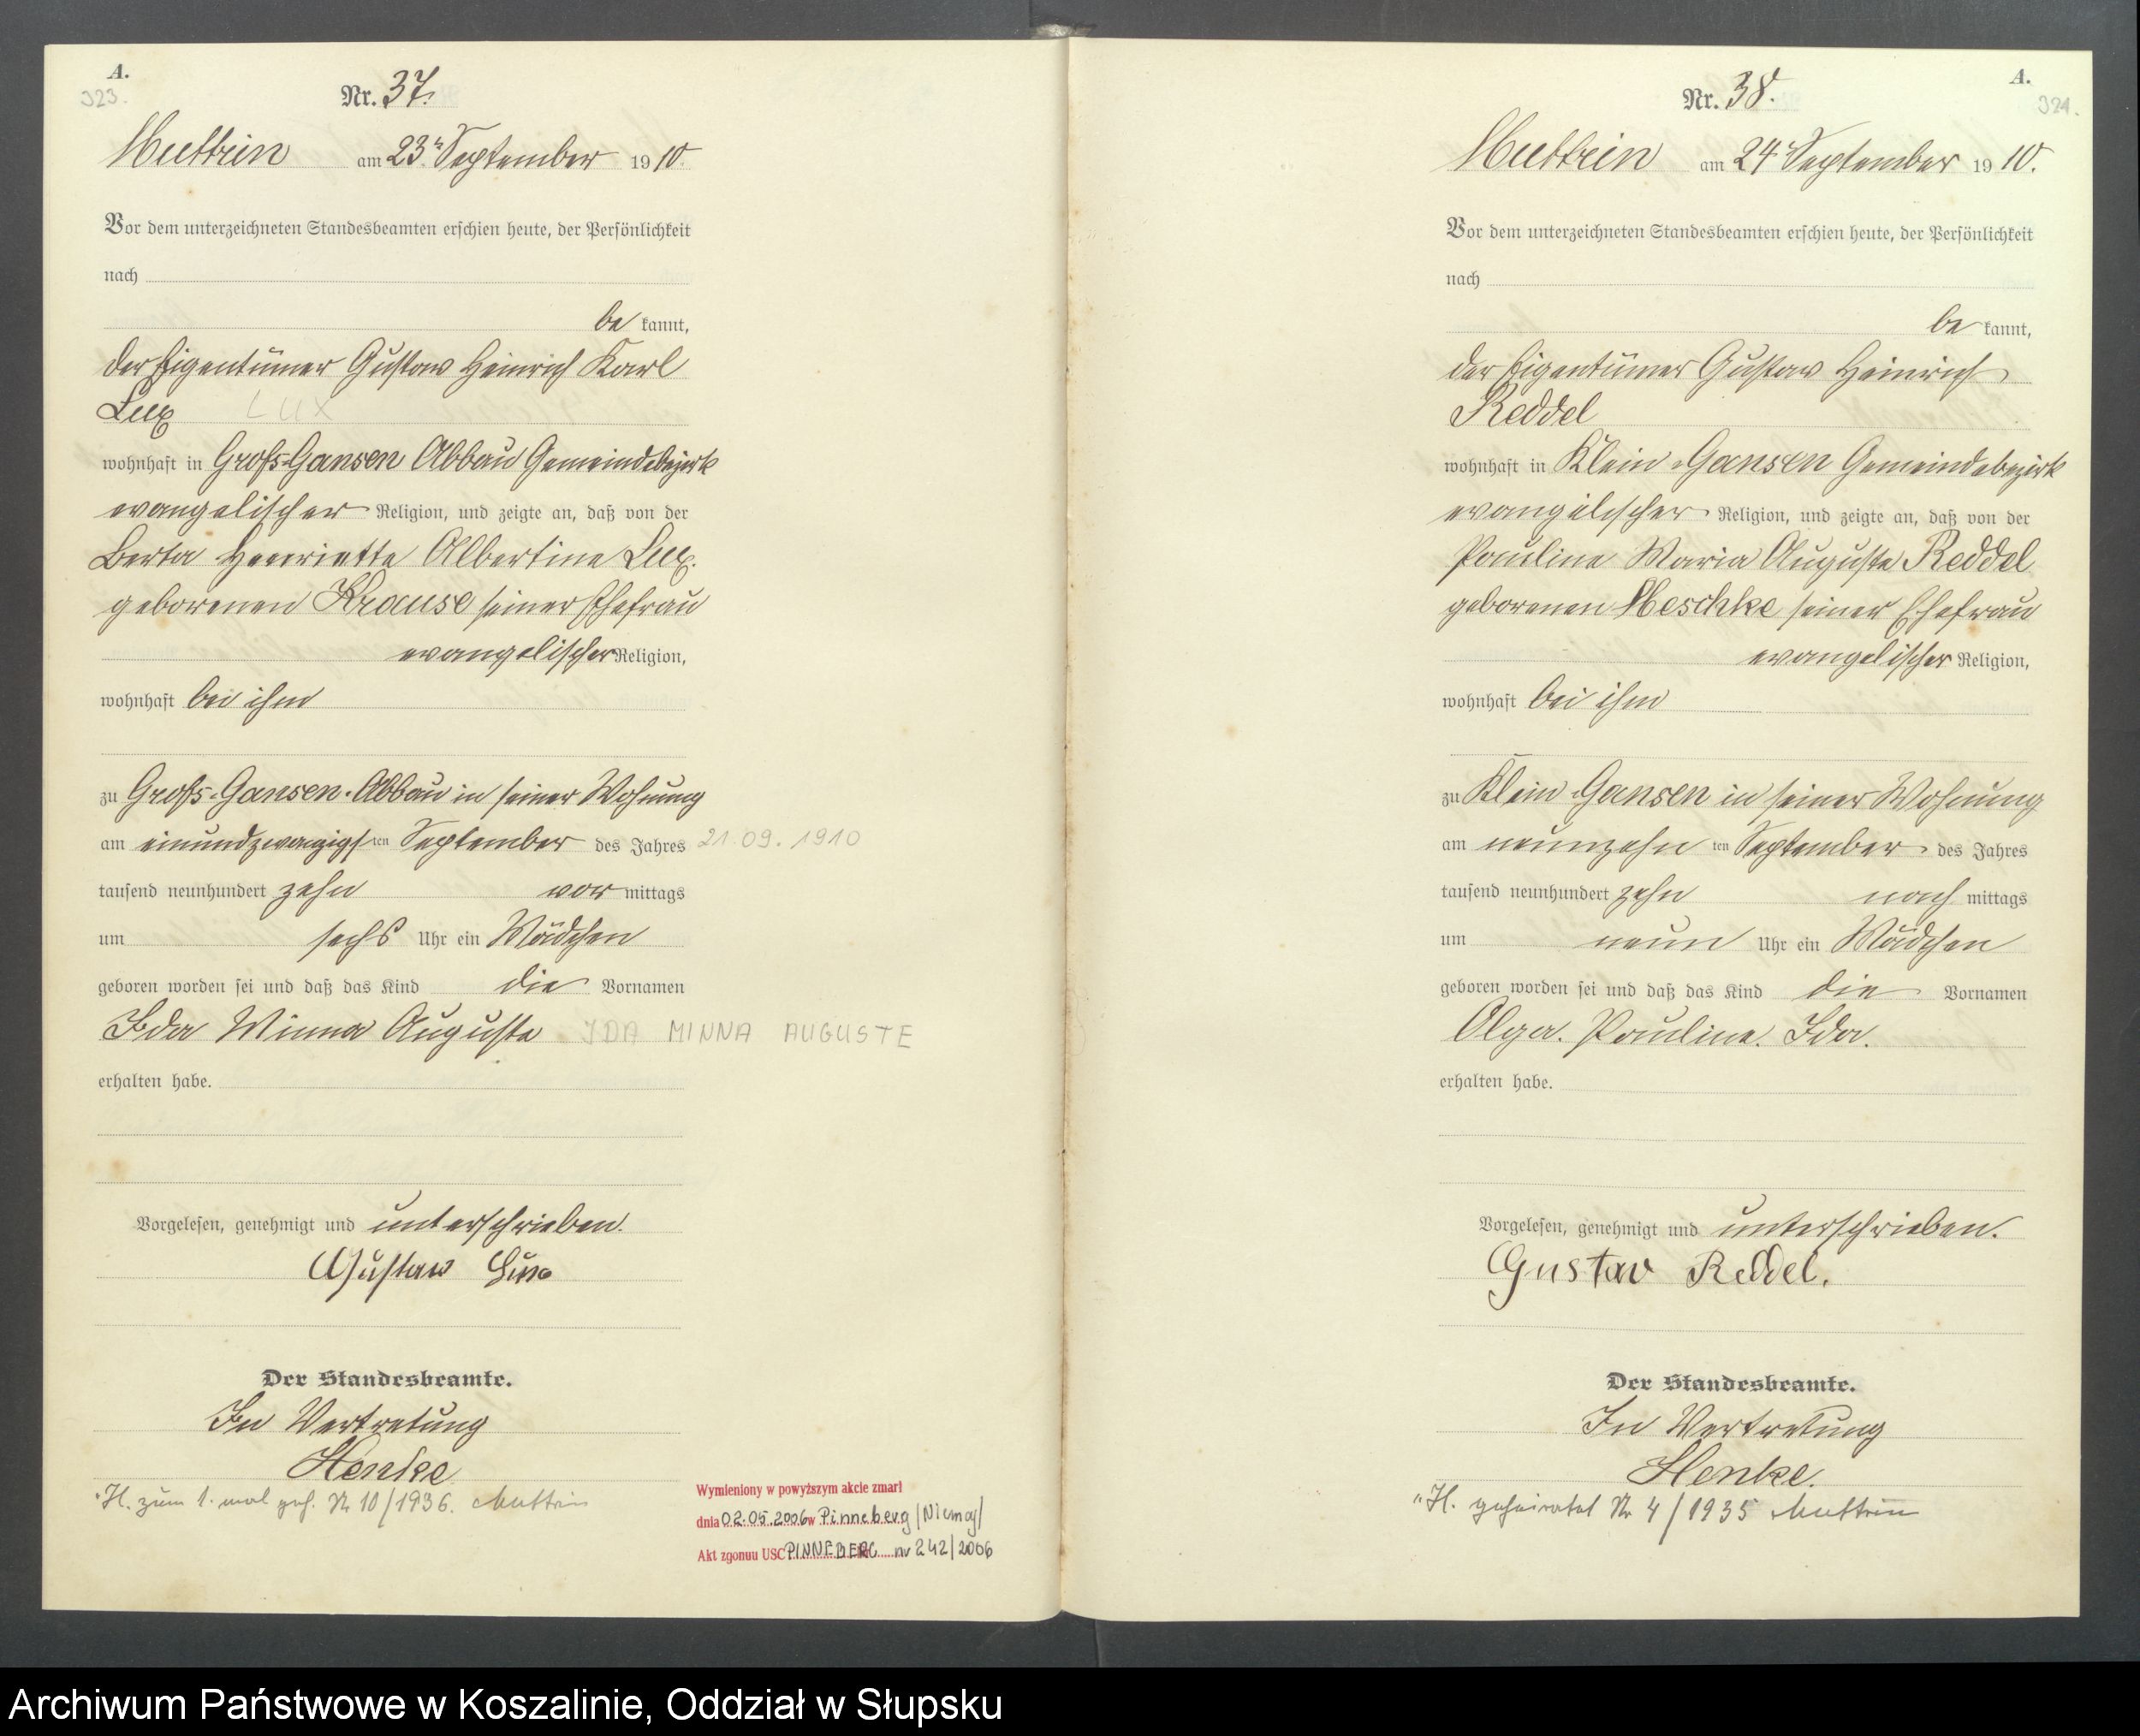 A.
323.
Nr. 37.
Muttrin am 23ten September 1910.
Vor dem unterzeichneten Standesbeamten erschien heute, der Persönlichkeit
nach
be kannt,
der Eigentümer Gustav Heinrich Karl
Lux LUX
wohnhaft in Groß-Gansen Abbau Gemeindebezirk
evangelischer Religion, und zeigte an, daß von der
Berta Henriette Albertine Lux.
geborenen Krause seiner Ehefrau
evangelischer Religion,
wohnhaft bei ihm
zu Groß-Gansen-Abbau in seiner Wohnung
am einundzwanzigsten September des Jahres 21.09.1910
tausend neunhundert zehn vor mittags
um sechs Uhr ein Mädchen
geboren worden sei und daß das Kind die Vornamen
Ida Minna Auguste IDA MINNA AUGUSTE
erhalten habe.
Vorgelesen, genehmigt und unterschrieben.
Gustav Lux
Der Standesbeamte.
In Vertretung
Henke
H. zum 1. mal geh. Nr 10/1936. Muttrin
Wymieniony w powyższym akcie zmarł
dnia 02.05.2006 w Pinneberg /Niemcy/
Akt zgonuu USC PINNEBERG nr 242/2006
A.
324.
Nr. 38.
Muttrin am 24ten September 1910.
Vor dem unterzeichneten Standesbeamten erschien heute, der Persönlichkeit
nach
be kannt,
der Eigentümer Gustav Heinrich
Reddel
wohnhaft in Klein-Gansen Gemeindebezirk
evangelischer Religion, und zeigte an, daß von der
Pauline Maria Auguste Reddel
geborenen Meschke seiner Ehefrau
evangelischer Religion,
wohnhaft bei ihm
zu Klein-Gansen in seiner Wohnung
am neunzehn ten September des Jahres
tausend neunhundert zehn nach mittags
um neun Uhr ein Mädchen
geboren worden sei und daß das Kind die Vornamen
Olga. Pauline. Ida.
erhalten habe.
Vorgelesen, genehmigt und unterschrieben.
Gustav Reddel.
Der Standesbeamte.
In Vertretung
Henke.
"H. geheiratet Nr 4/1935 Muttrin
Archiwum Państwowe w Koszalinie, Oddział w Słupsku